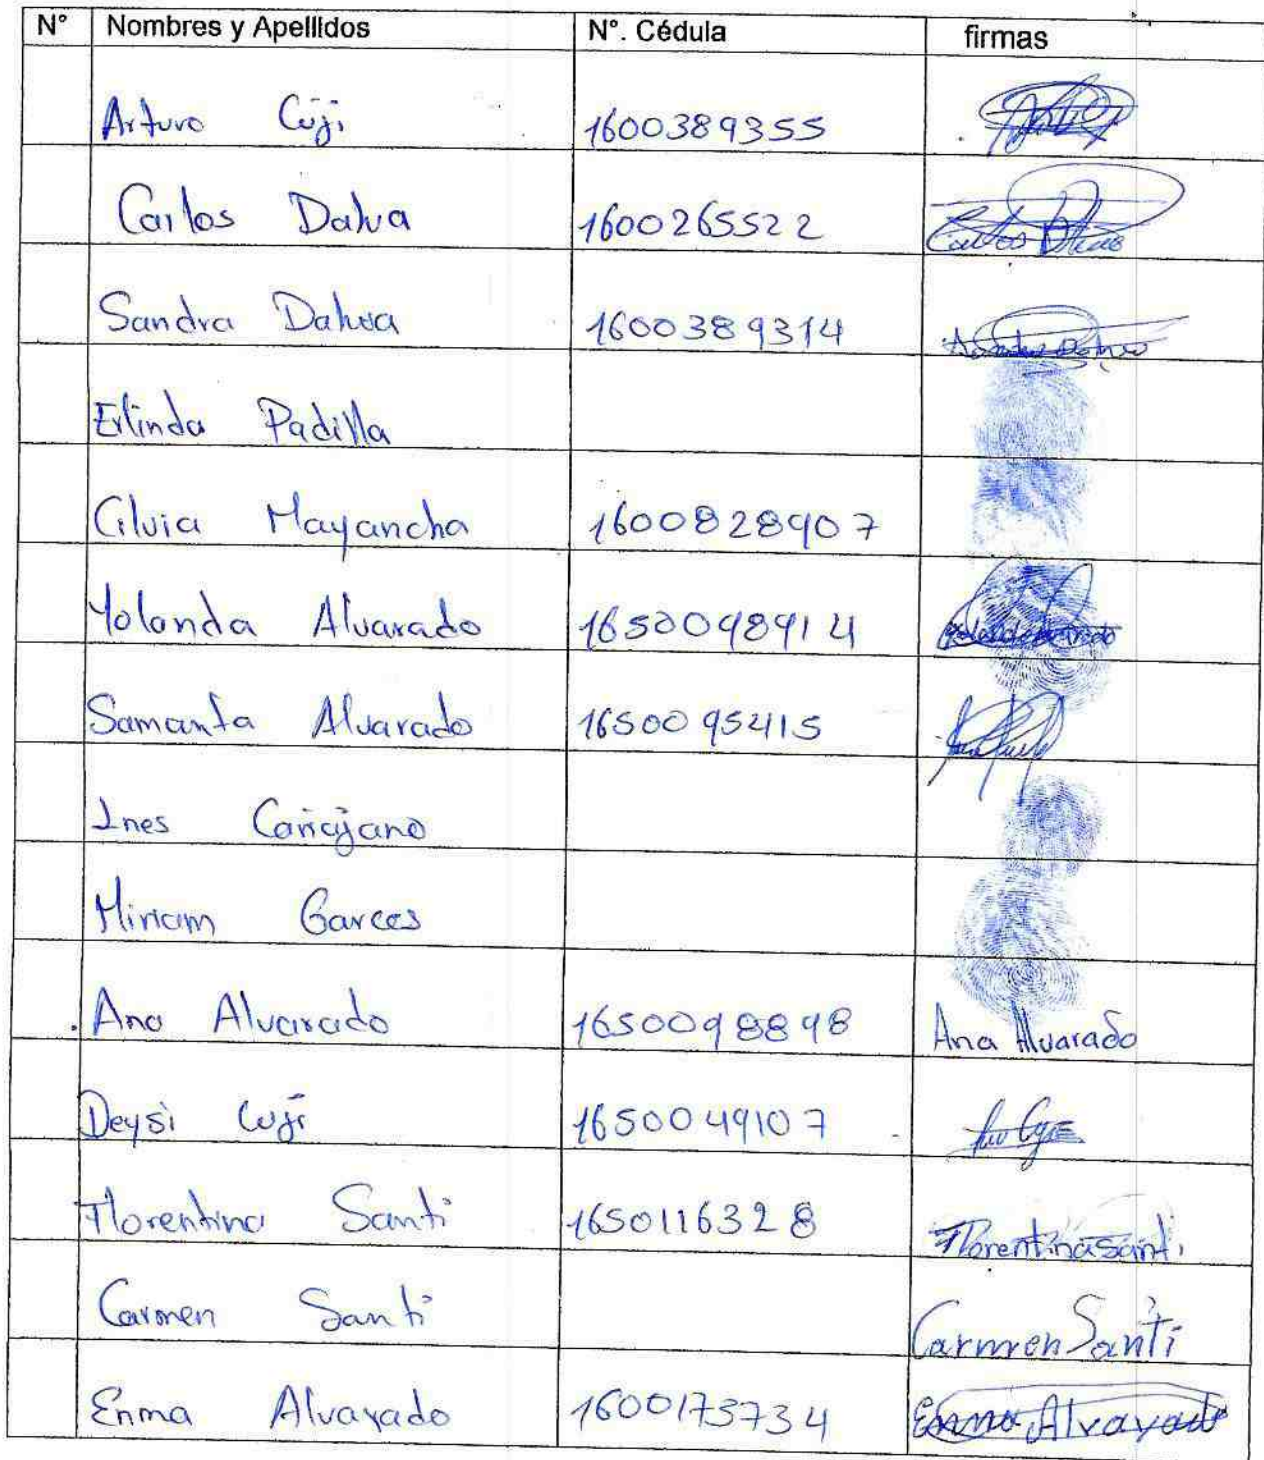 N° Nombres y Apellidos N°. Cédula firmas
Arturo Cují 1600389355
Carlos Dahua 1600265522
Sandra Dahua 1600389314
Erlinda Padilla
Cilvia Mayancha 1600828907
Yolanda Alvarado 1650098914
Samanta Alvarado 1650095415
Ines Cariajano
Miriam Garces
Ana Alvarado 1650098898 Ana Alvarado
Deysi Cují 1650049107
Florentina Santi 1650116328 Florentina Santi
Carmen Santi Carmen Santi
Enma Alvarado 1600173734 Enma Alvarado